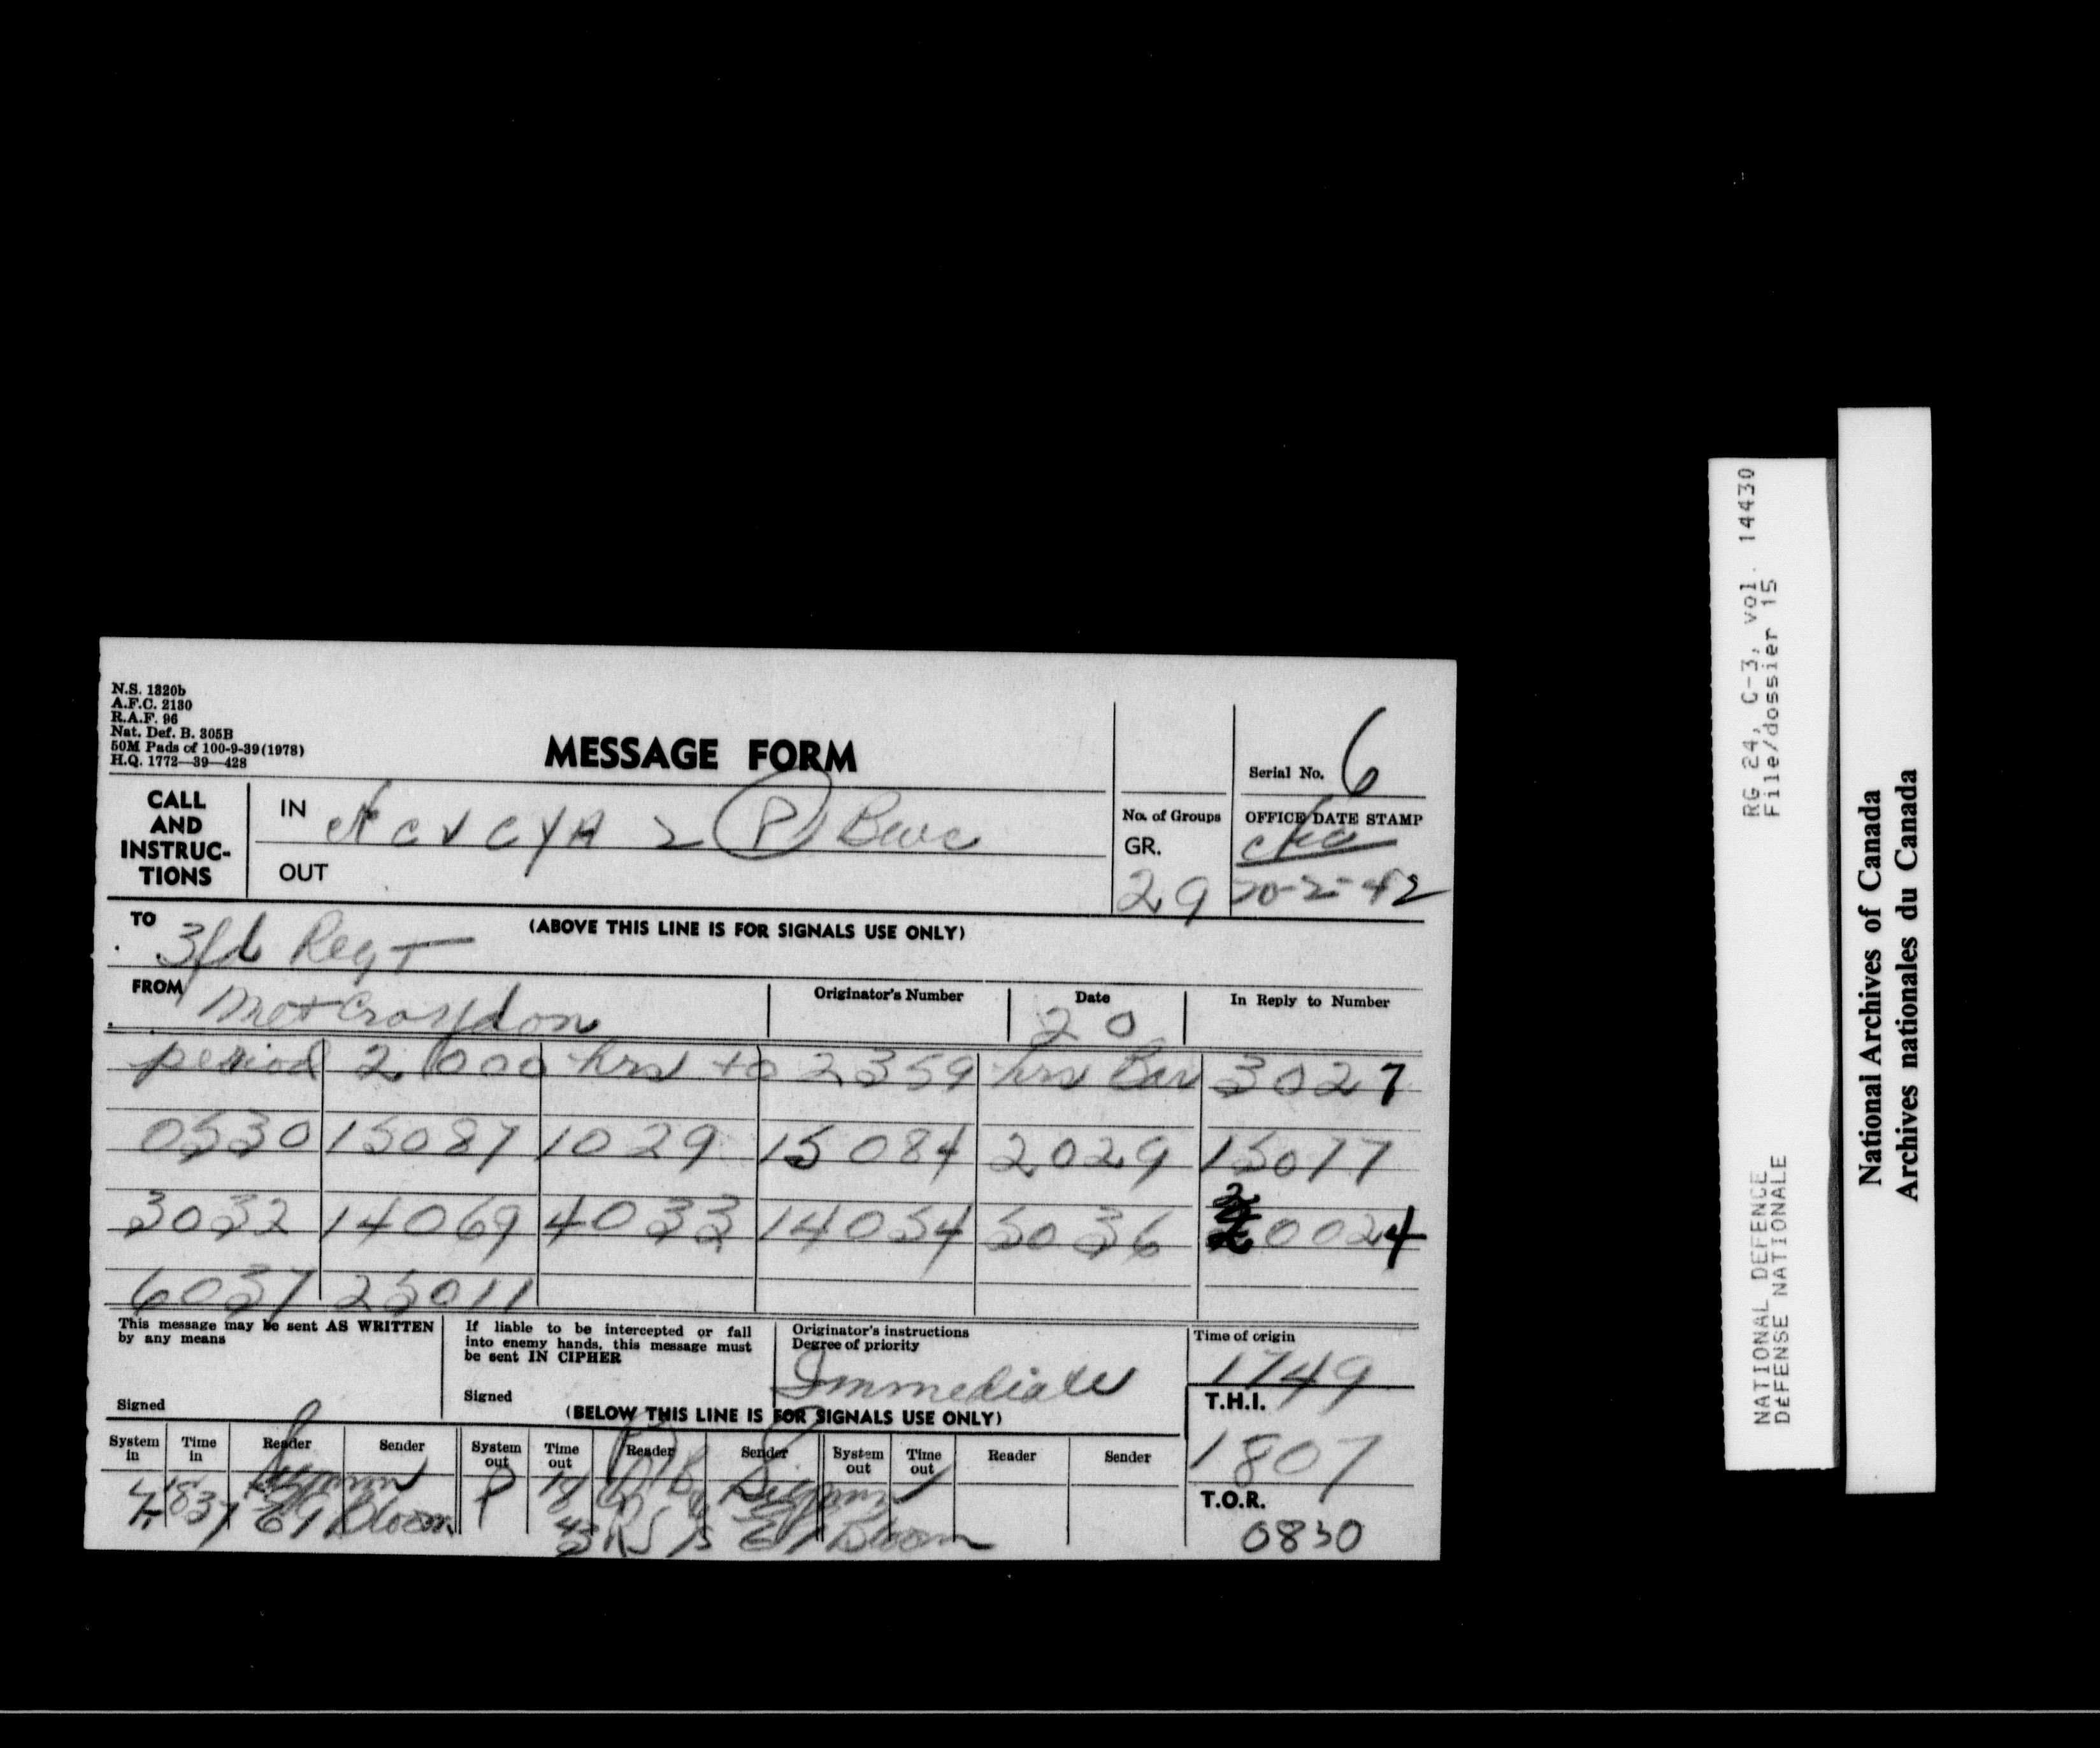 N.S. 1320b
A.F.C. 2130
R.A.F. 96
Nat. Def. B. 305B
50M Pads of 100-9-39 (1978)
H.Q. 1772—39—428
MESSAGE FORM
Serial No. 6
CALL AND INSTRUC-TIONS
IN 2 P
OUT
No. of Groups
GR.
29
OFFICE DATE STAMP
20-2-42
TO 3 fd Regt
(ABOVE THIS LINE IS FOR SIGNALS USE ONLY)
FROM Met Croydon
Originator's Number
Date
20
In Reply to Number
period 2000 hrs to 2359 hrs Bar 3027
0530 15087 1029 15084 2029 15077
3032 14069 4033 14054 5036 20024
6037 25011
This message may be sent AS WRITTEN
by any means
Signed
If liable to be intercepted or fall
into enemy hands, this message must
be sent IN CIPHER
Signed
Originator's instructions
Degree of priority
Immediate
Time of origin
1749
T.H.I.
1807
T.O.R.
0830
(BELOW THIS LINE IS FOR SIGNALS USE ONLY)
System in Time in Reader Sender System out Time out Reader Sender System out Time out Reader Sender
1837 Bloom P 18 43 Bloom
RG 24, C-3, vol. 14430
File/dossier 15
NATIONAL DEFENCE
DÉFENSE NATIONALE
National Archives of Canada
Archives nationales du Canada